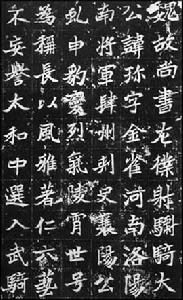 魏故尚書左僕射驃騎大
公諱珍字金雀河南洛陽
南將軍肆州刺史襄陽公
虬申豹變烈氣陵霄世号
為稱長以風雅著仁六藝
不妄譽太和中選入武騎